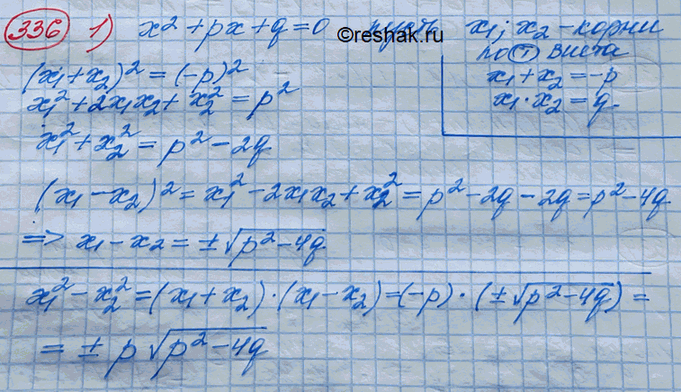 336 1) x² + px + q = 0 пусть x₁; x₂ – корни
©reshak.ru
по Ⓣ Виета
x₁ + x₂ = –p
x₁ · x₂ = q.
(x₁ + x₂)² = (–p)²
x₁² + 2x₁x₂ + x₂² = p²
x₁² + x₂² = p² – 2q
(x₁ – x₂)² = x₁² – 2x₁x₂ + x₂² = p² – 2q – 2q = p² – 4q
=> x₁ – x₂ = ± √(p² – 4q)
x₁² – x₂² = (x₁ + x₂) · (x₁ – x₂) = (–p) · (± √(p² – 4q)) =
= ± p √(p² – 4q)